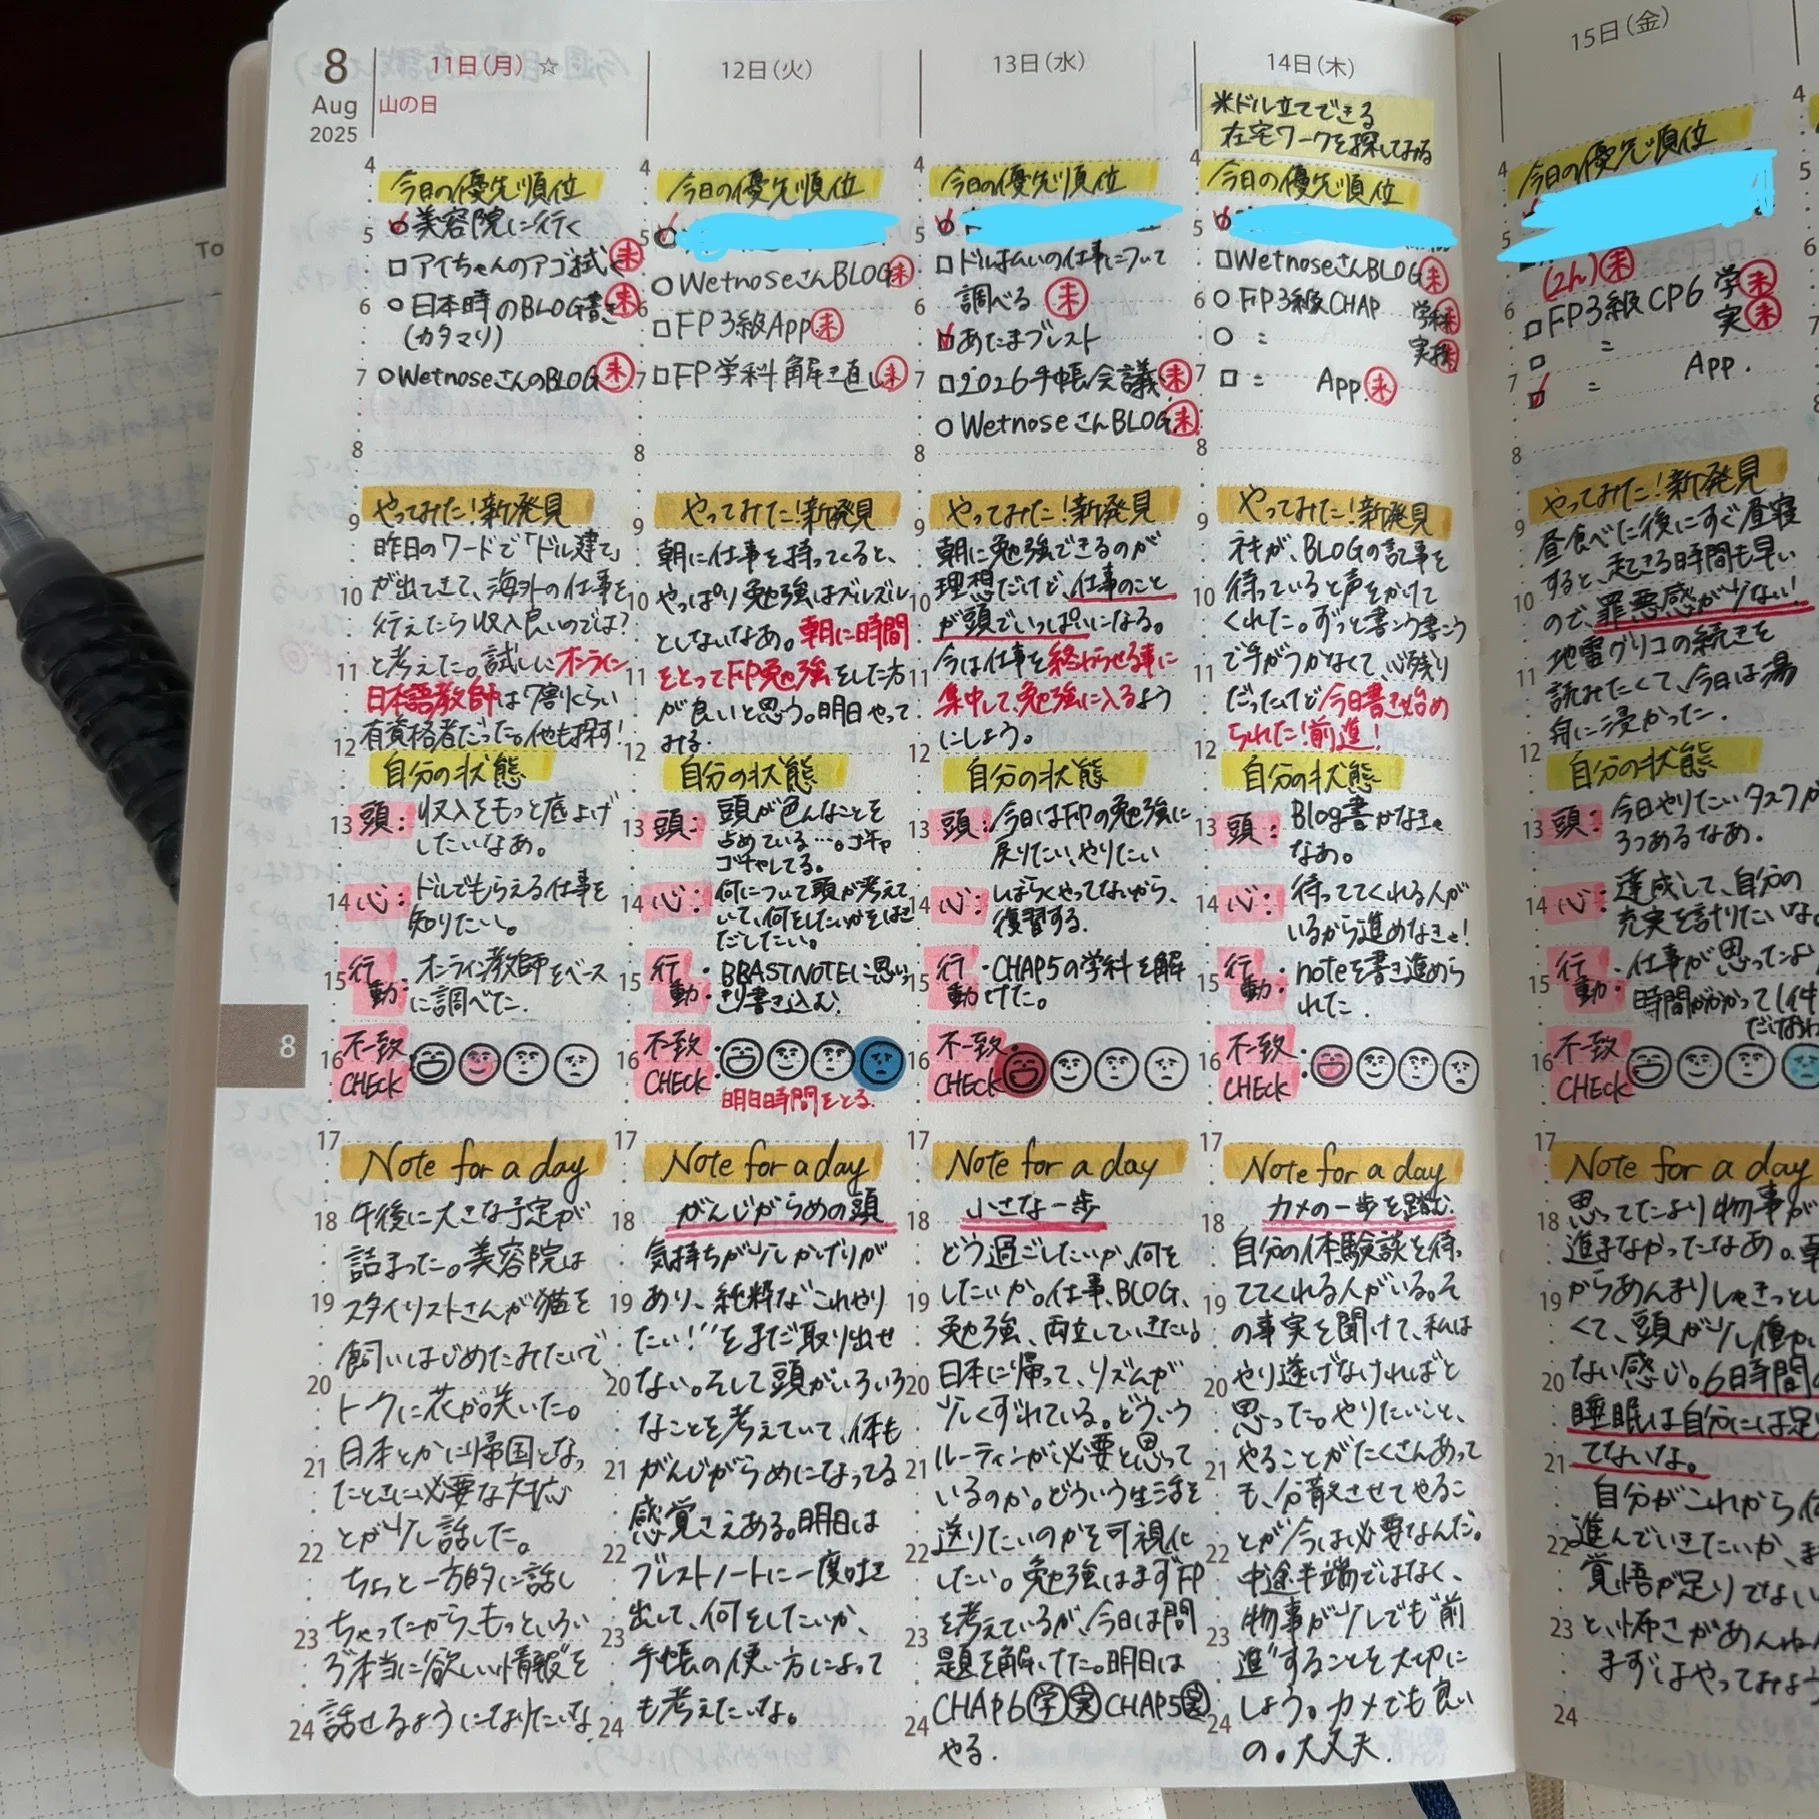 8
Aug
2025
11日(月) ☆
山の日
今日の優先順位
美容院に行く
アイちゃんのアゴ拭く 未
日本時のBLOG書き 未
(カタマリ)
WetnoseさんのBLOG 未
やってみた!新発見
昨日のワードで「ドル建て」
が出てきて、海外の仕事を
行えたら収入良いのでは?
と考えた。試しにオンライン
日本語教師は7割くらい
有資格者だった。他も探す!
自分の状態
頭: 収入をもっと底上げ
したいなあ。
心: ドルでもらえる仕事を
知りたい。
行動: オンライン教師をベース
に調べた.
不一致
CHECK
Note for a day
午後に大きな予定が
詰まった。美容院は
スタイリストさんが猫を
飼いはじめたみたいで、
トークに花が咲いた。
日本とかに帰国となっ
たときに必要な対応
とか少し話した。
ちょっと一方的に話し
ちゃったから、もっといろい
ろ"本当に欲しい情報"を
話せるようになりたいな.
12日(火)
今日の優先順位
WetnoseさんBLOG 未
FP3級App 未
FP学科解き直し 未
やってみた!新発見
朝に仕事を持ってくると、
やっぱり勉強はズルズル
としないなあ。朝に時間
をとってFP勉強をした方
が良いと思う。明日やって
みる.
自分の状態
頭: 頭が色んなことを
占めている…。ゴチャ
ゴチャしてる。
心: 何について頭が考えて
いて、何をしたいかをはき
だしたい。
行動: BRASTNOTEに思いっ
きり書き込む.
不一致
CHECK
明日時間をとる.
Note for a day
がんじがらめの頭
気持ちが少しかげりが
あり、純粋な"これやり
たい!"をまだ取り出せ
ない。そして頭がいろいろ
なことを考えていて、体も
がんじがらめになってる
感覚さえある。明日は
ブレストノートに一度吐き
出して、何をしたいか、
手帳の使い方によって
も考えたいな。
13日(水)
今日の優先順位
ドル払いの仕事について
調べる 未
あたまブレスト
2026手帳会議 未
WetnoseさんBLOG 未
やってみた!新発見
朝に勉強できるのが
理想だけど、仕事のこと
が頭でいっぱいになる。
今は仕事を終わらせる事に
集中して、勉強に入るよう
にしよう。
自分の状態
頭: 今日はFPの勉強に
戻りたい、やりたい
心: しばらくやってないから、
復習する.
行動: CHAP5の学科を解
けた。
不一致
CHECK
Note for a day
小さな一歩
どう過ごしたいか、何を
したいか。仕事、BLOG、
勉強、両立していきたい。
日本に帰って、リズムが
少しくずれている。どういう
ルーティンが必要と思って
いるのか。どういう生活を
送りたいのかを可視化
したい。勉強はまずFP
を考えているが、今日は問
題を解けた。明日は
CHAP6 学 実 CHAP5 実
やる.
14日(木)
米ドル立てできる
在宅ワークを探してみる
今日の優先順位
WetnoseさんBLOG 未
FP3級CHAP 学科 未
〃 実技 未
〃 App. 未
やってみた!新発見
ネキが、BLOGの記事を
待っていると声をかけて
くれた。ずっと書こう書こう
で手がつかなくて、心残り
だったけど今日書き始め
られた!前進!
自分の状態
頭: Blog書かなきゃ
なあ。
心: 待っててくれる人が
いるから進めなきゃ!
行動: noteを書き進めら
れた.
不一致
CHECK
Note for a day
カメの一歩を踏む.
自分の体験談を待っ
ててくれる人がいる。そ
の事実を聞けて、私は
やり遂げなければと
思った。やりたいこと、
やることがたくさんあって
も、分散させてやるこ
とが今は必要なんだ。
中途半端ではなく、
物事が少しでも"前
進"することを大切に
しよう。カメでも良い
の。大丈夫.
15日(金)
今日の優先順位
(2h) 未
FP3級CP6 学 未
実 未
〃 App.
やってみた!新発見
昼食べた後にすぐ昼寝
すると、起きる時間も早い
ので、罪悪感が少ない!
地雷グリコの続きを
読みたくて、今日は湯
舟に浸かった.
自分の状態
頭: 今日やりたいタスクが
3つあるなあ.
心: 達成して、自分の
充実を計りたいな。
行動: 仕事が思ったより
時間がかかって1件
不一致
CHECK
Note for a day
思ってたより物事が
進まなかったなあ。朝
からあんまりしゃきっとし
くて、頭が少し働か
ない感じ。6日時間
睡眠は自分には足り
てないな。
自分がこれから
進んでいきたいか、ま
覚悟が足りてない
と、怖さがあんね
まずはやってみよう